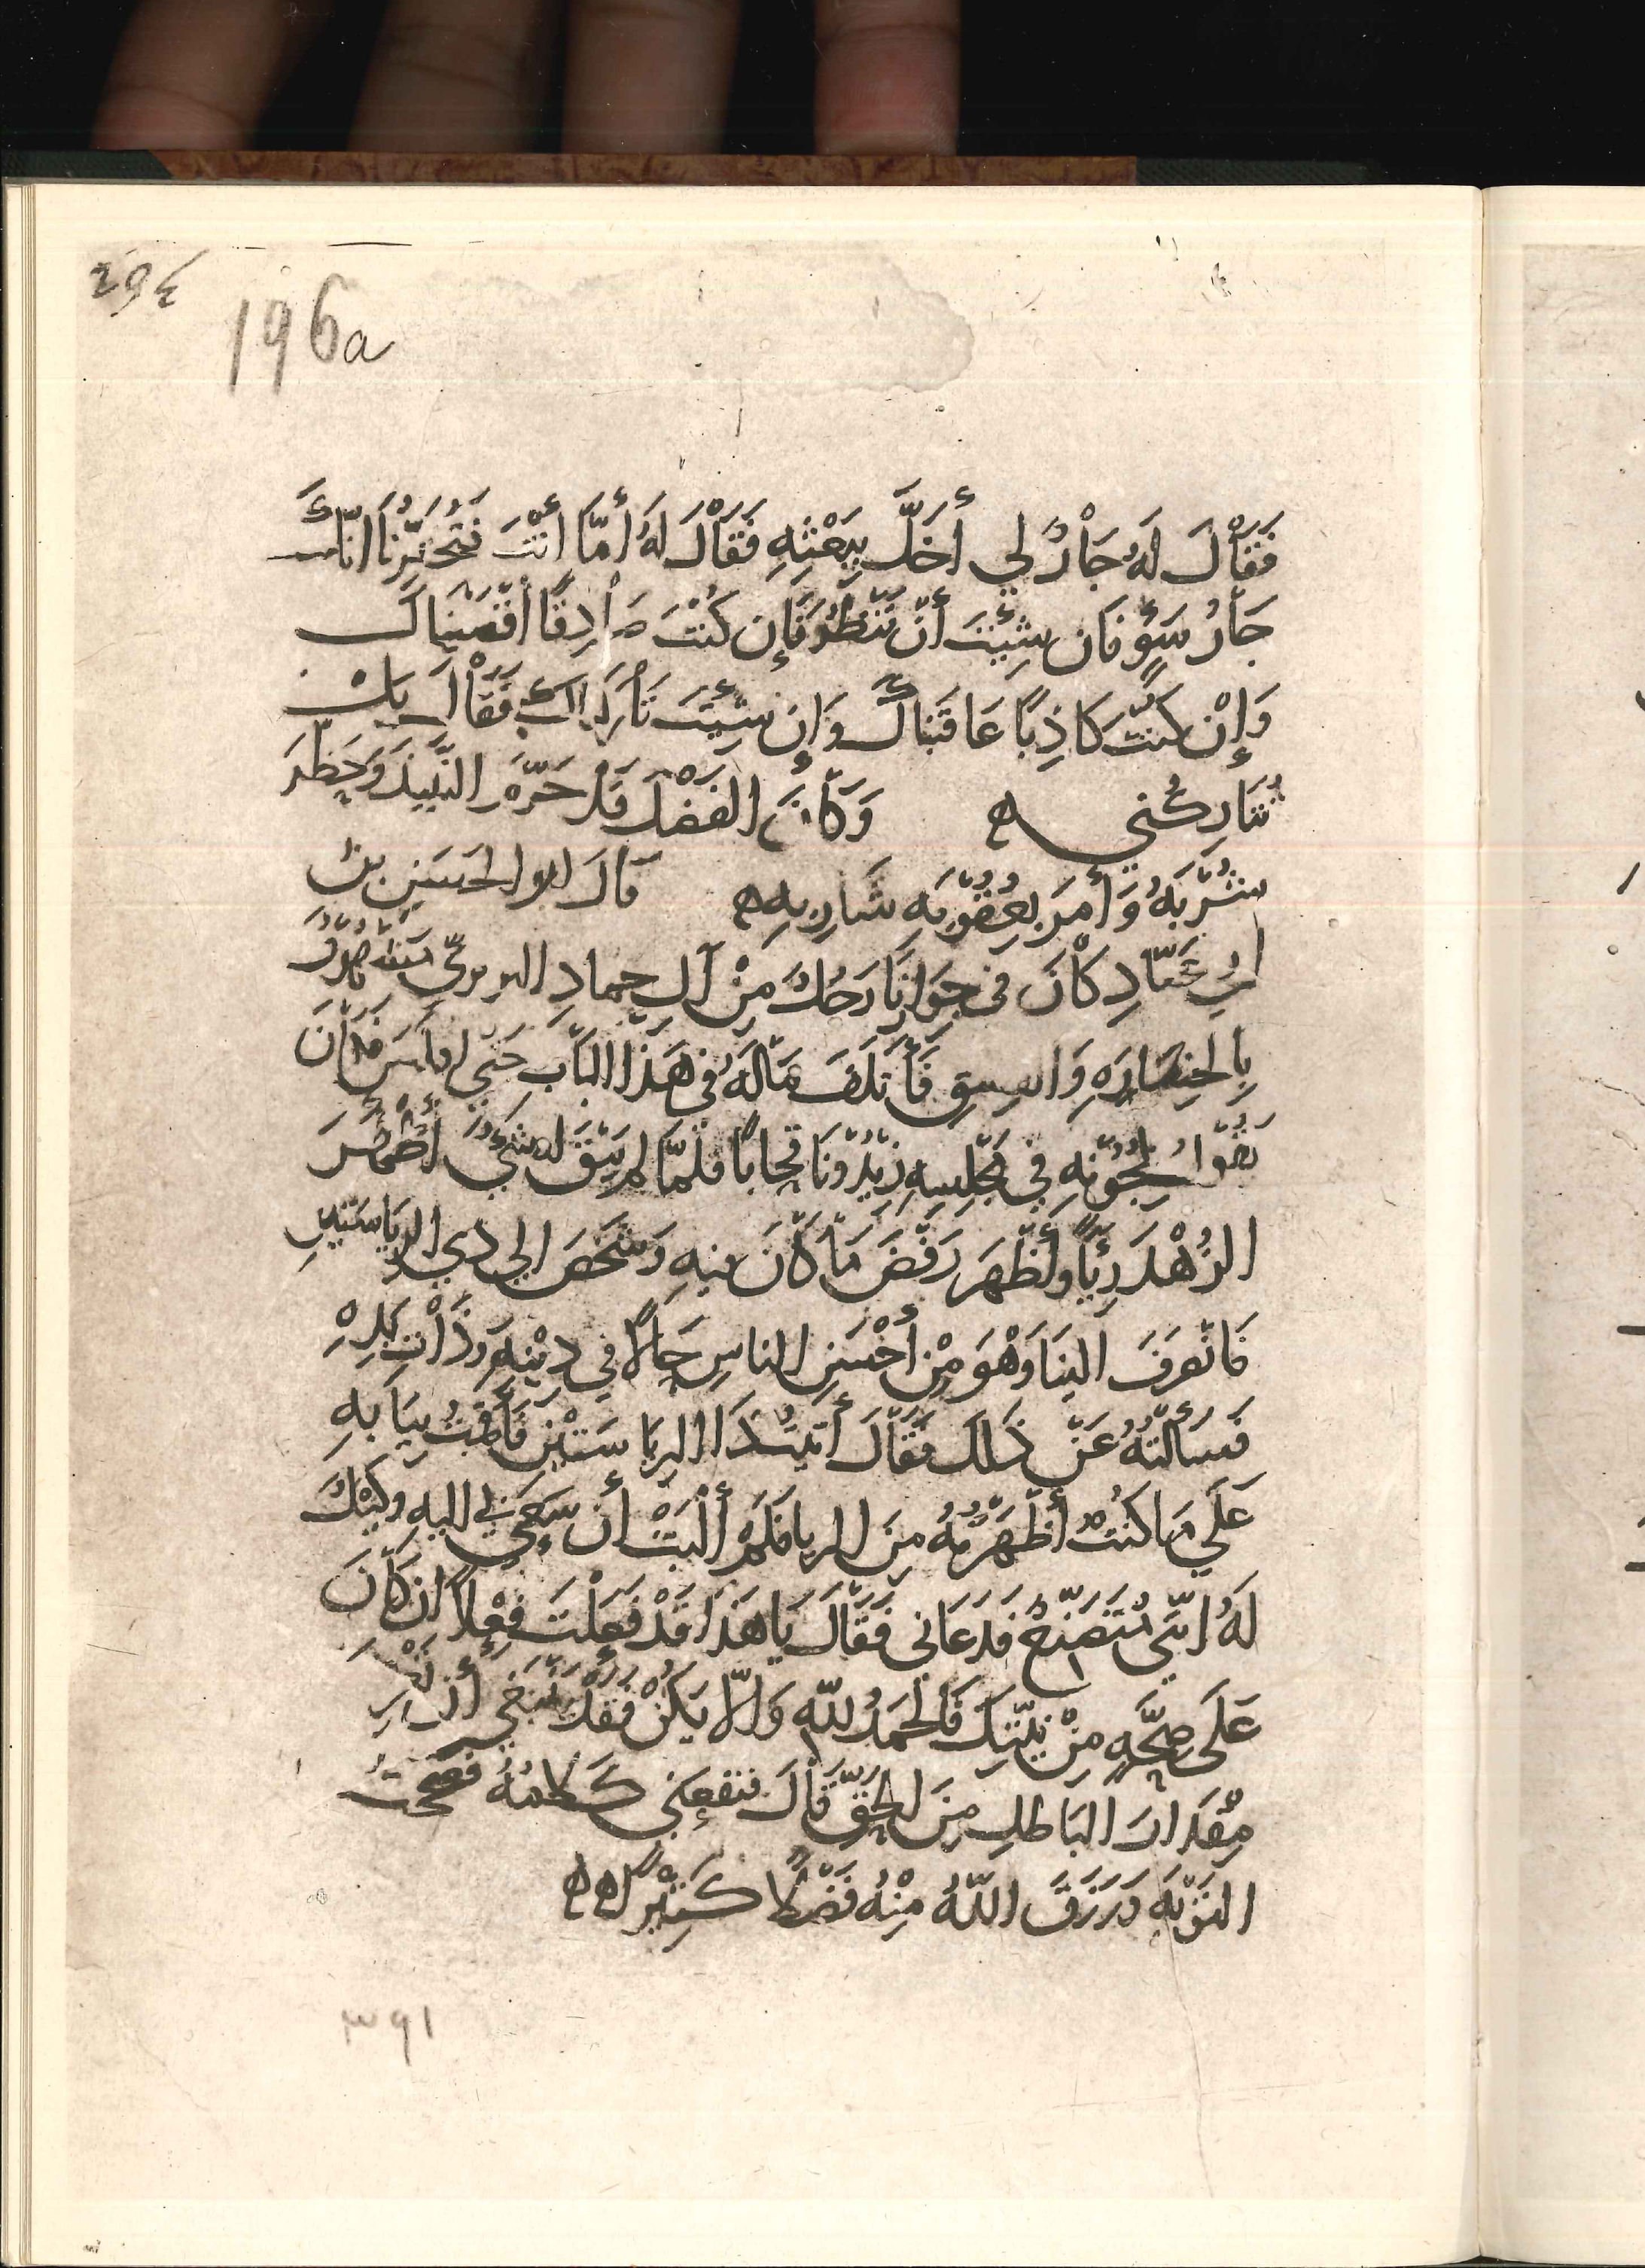 294
196a
فَقَالَ لَهُ جَارٌ لِي أَخَلَّ بِبَعْثِهِ فَقَالَ لَهُ أَمَّا أَنْتَ فَتُخْبِرُنَا انّكَ
جَارُ سَوْءٍ فَان شِئْتَ أَنْ نَنْظُرَ فَإِن كُنْتَ صَادِقًا أَقْصَيْنَاكَ
وَإِنْ كُنْتَ كَاذِبًا عَاقَبْنَاكَ وَإِن شِئْتَ تَارَكْنَاكَ فَقَالَ بَلْ
تُتَارِكُني ه وَكَانَ الفَضْلُ قَدْ حَرَّمَ النَّبِيذَ وَحَظَرَ
شُرْبَهُ وَأَمَرَ بِعُقُوبَةِ شَارِبِهِ ه قَالَ ابو الحسَين بن
أبي عَبَّادِ كَانَ في جِوَارِنَا رَجُلٌ مِنْ آلِ حماد البربريّ
فَأَتلَفَ مَالَهُ فِي هَذَا البَابِ حَتَّى افلَسَ فَكَانَ
فِي مَجْلِسِهِ فَلَمَّا لم يَبْقَ له شَيْءٌ أَضْمَرَ
الزُهْدَ رِيَاءً وأَظْهَرَ رَفْضَ مَا كَانَ فيهِ وَشَخَصَ الي ذي الرِيَاسَتَيْنِ
فَانْصَرَفَ الَيْنَا وَهْوَ مِنْ أَحْسَنِ الناسِ حَالًا فِي دِيْنِهِ وَذَاتِ يَدِهِ
فَسَأَلْتُهُ عَنْ ذَلكَ فقَالَ أَتيتُ ذَا الرِيَاسَتَيْنِ فَأَقَمْتُ بِبَابِهِ
عَلَي مَا كُنْتُ أَظْهَرْتُهُ مِنَ الريا فَلَمْ أَلْبَثْ أَن سُعِيَ بي اليهِ وَقِيْلَ
لَهُ انّي مُتَصَنِّعٌ فَدَعَانى فَقَالَ يَا هَذَا قَدْ فَعَلْتَ فِعْلًا ان كَانَ
عَلَى صِحَّةٍ مِنْ نِيَّتِكَ فَالحَمْدُ للّهِ وَالّا يَكُنْ فَقَدْ يَنْبَغِي أَن تَعْرِفَ
مِقْدَارَ البَاطِلِ مِنَ الحَقِّ قَالَ فنفعَني كَلامُهُ فصَحَحْتُ
التَوْبَةَ وَرَزَقَ اللّهُ مِنْهُ فَضْلًا كَثِيْرًا ه ه
٣٩١